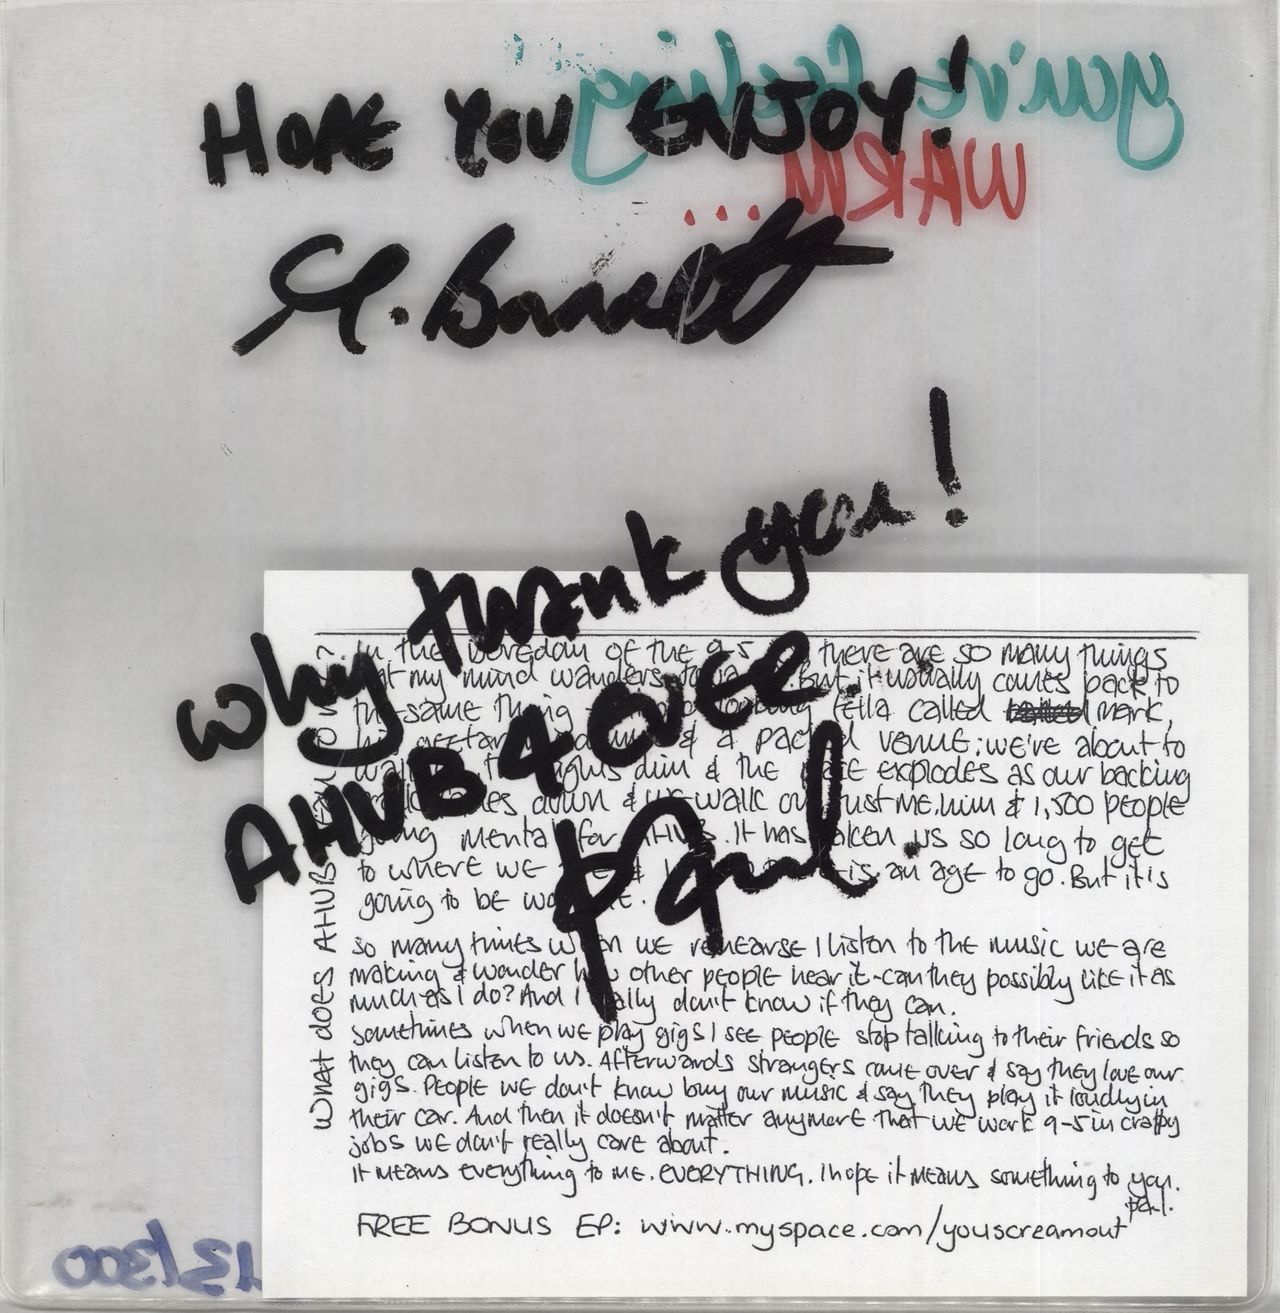 you're feeling
WARM...
HOPE YOU ENJOY!
M. Barrett
why thank you!
AHUB 4 EVER.
Paul
WHAT DOES AHUB MEAN TO ME?
In the boredom of the 9-5 there are so many things
that my mind wanders towards. But it usually comes back to
the same thing - looking fella called Mark,
his guitar, & a packed venue; we're about to
walk lights dim & the place explodes as our backing
comes down & we walk out. Just me, him & 1,500 people
going mental for AHUB. It has taken us so long to get
to where we are & is an age to go. But it is
going to be worth it.
So many times when we rehearse I listen to the music we are
making & wonder how other people hear it - can they possibly like it as
much as I do? And I really don't know if they can.
Sometimes when we play gigs I see people stop talking to their friends so
they can listen to us. Afterwards strangers come over & say they love our
gigs. People we don't know buy our music & say they play it loudly in
their car. And then it doesn't matter anymore that we work 9-5 in crappy
jobs we don't really care about.
It means everything to me. EVERYTHING. I hope it means something to you.
Paul.
FREE BONUS EP: www.myspace.com/youscreamout
13/300